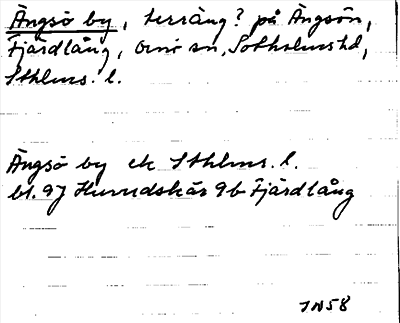 Ängsö by, terräng? på Ängsön,
Fjärdlång, Ornö sn, Sotholms hd,
Sthlms. l.
Ängsö by ek Sthlms. l.
bl. 97 Huvudskär 9b Fjärdlång
JN58